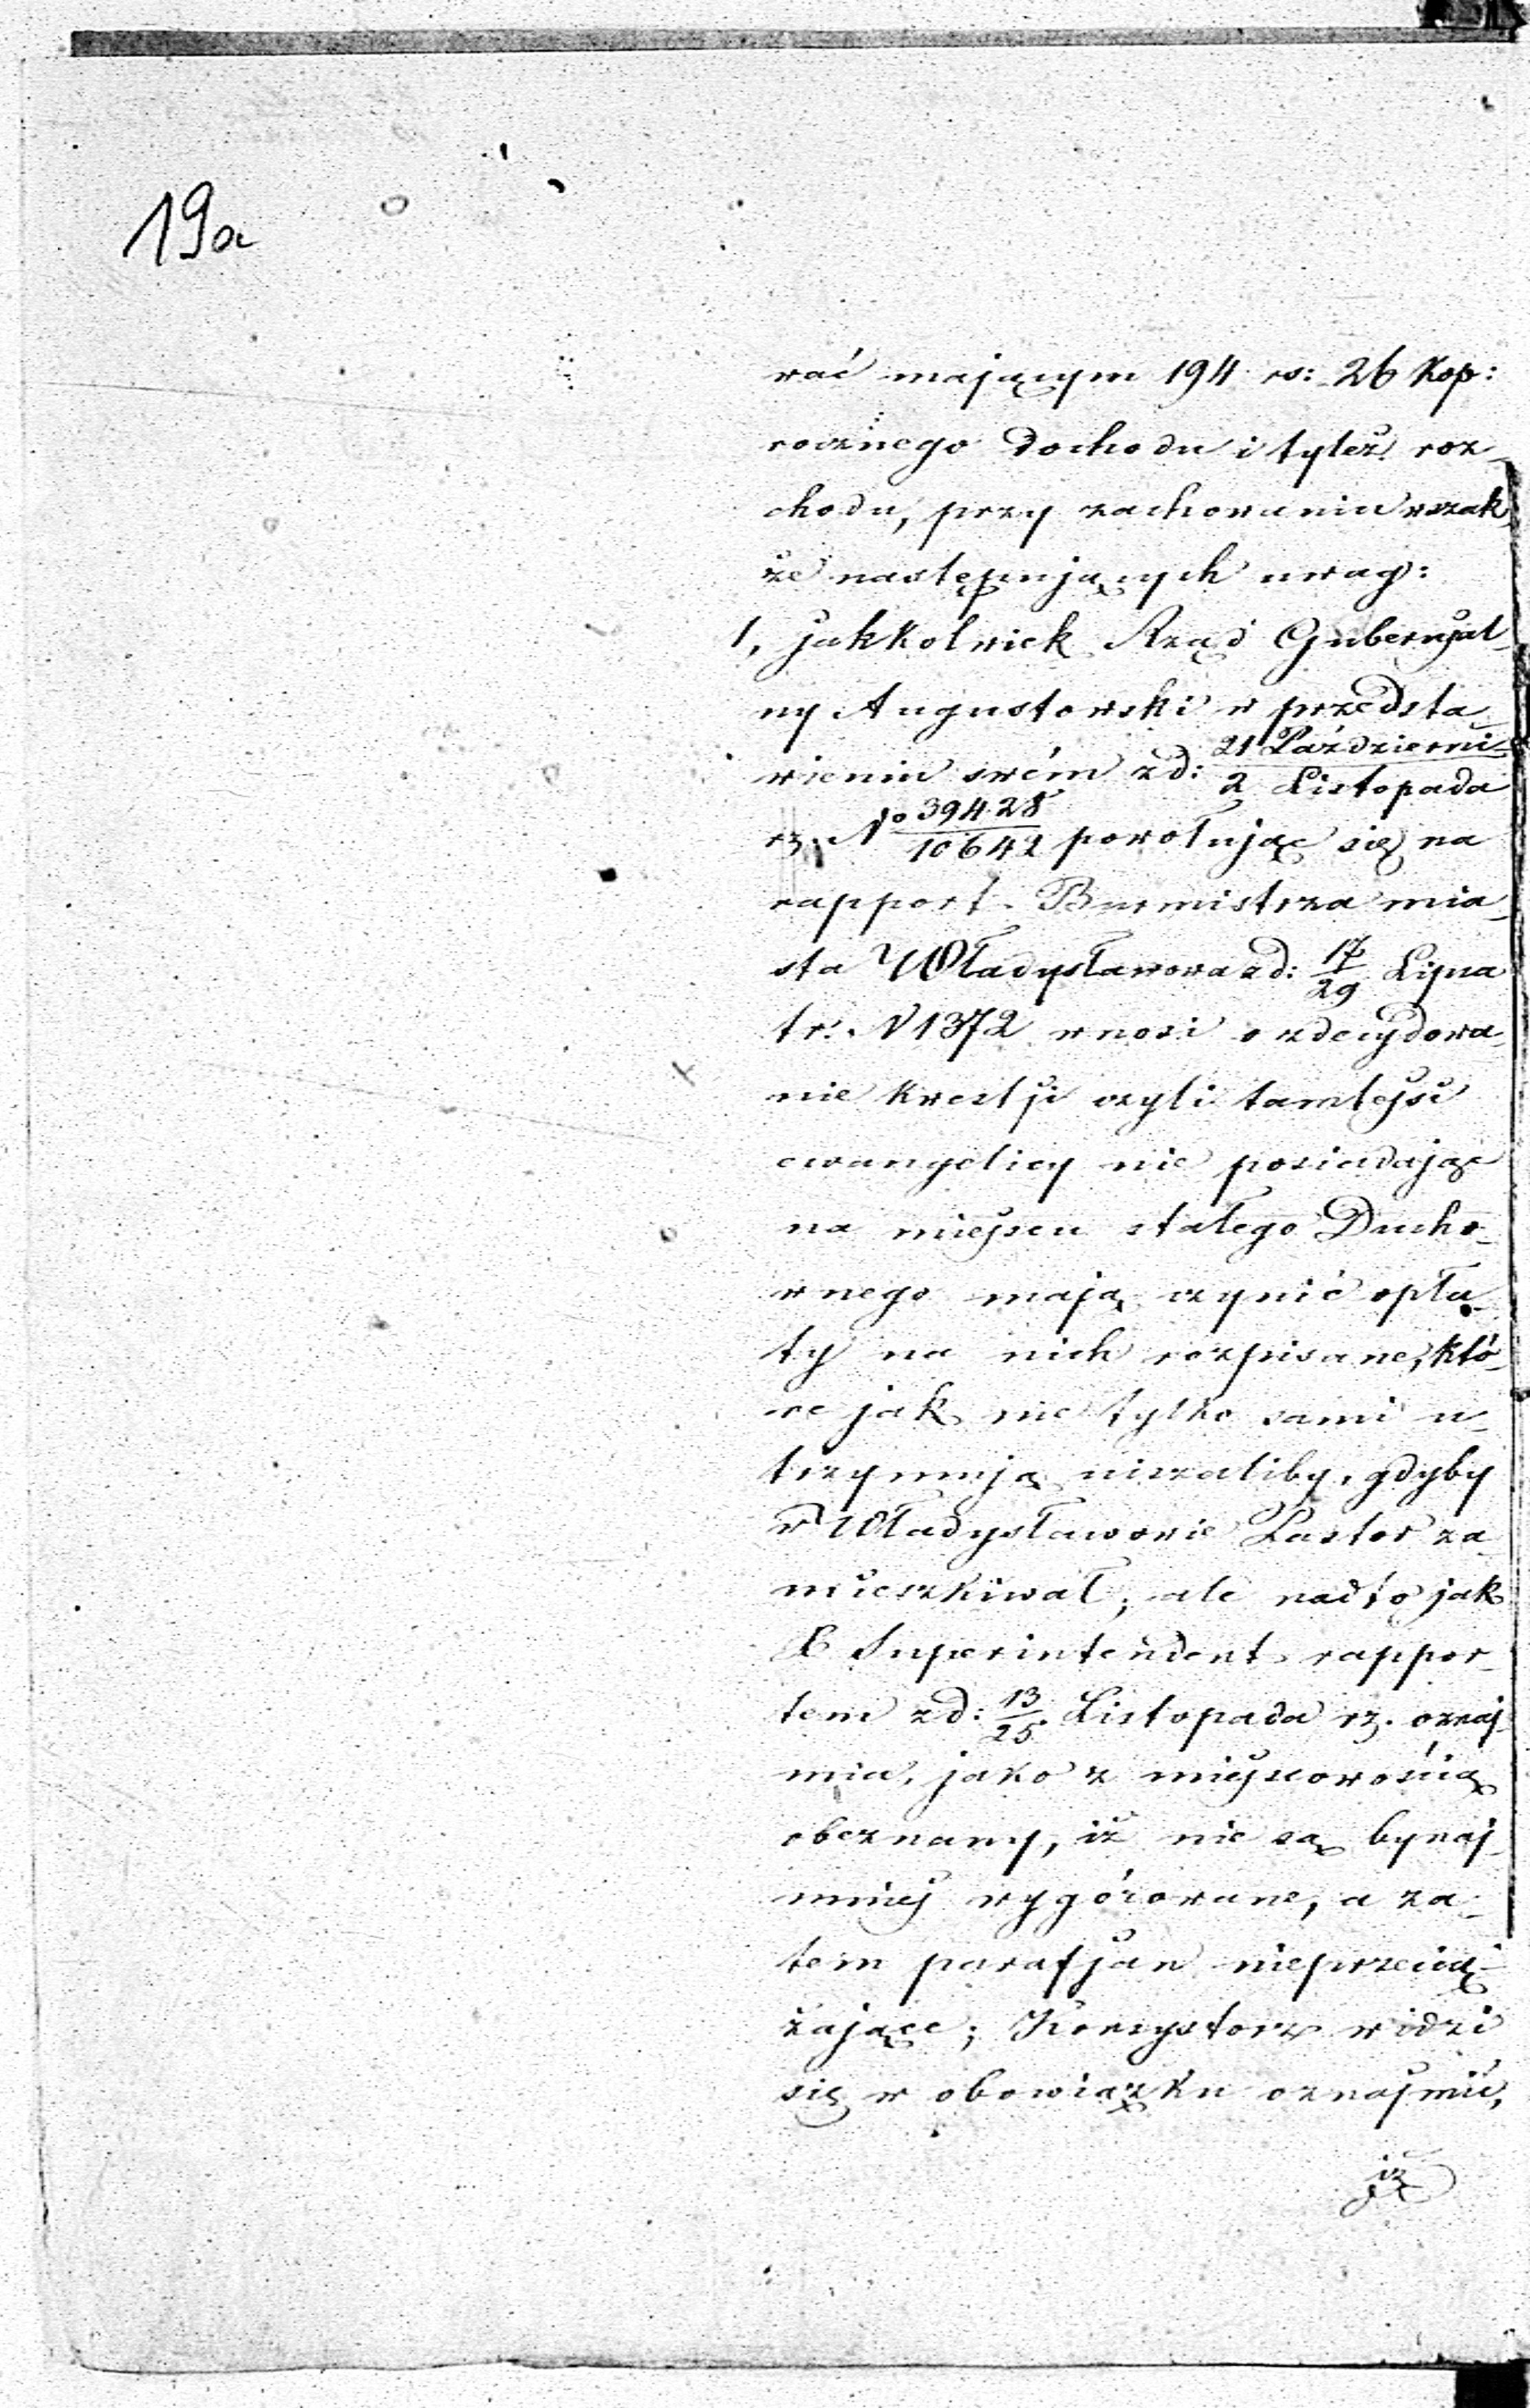 19a
wać mającym 194 rs: 26 kop:
rocznego dochodu i tyleż roz-
chodu, przy zachowaniu wszak
że następujących uwag:
1, jakkolwiek Rząd Gubernjal-
ny Augustowski w przedsta-
wieniu swém z d: 21 Październi-/2 Listopada
rz. No 39428/10642 powołując się na
rapport Burmistrza mia-
sta Władysławowa z d: 17/29 Lipca
tr. N 1372 wnosi o zdecydowa-
nie kwestji czyli tamtejsi
ewangelicy nie posiadając
na miejscu stałego Ducho-
wnego mają czynić opła-
ty na nich rozpisane, któ-
re jak nie tylko sami u-
trzymują uiszczaliby, gdyby
w Władysławowie Pastor za-
mieszkiwał, ale nadto jak
X Superintendent rappor-
tem z d: 13/25 Listopada rz. oznaj-
mia, jako z miejscowością
obeznany, iż nie są bynaj-
mniej wygórowane, a za-
tem parafjan nieprzecią-
żające; Konsystorz widzi
się w obowiązku oznajmić,
iż